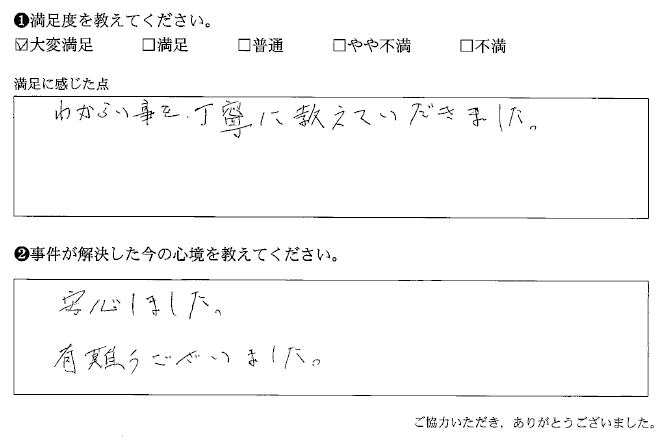 ❶満足度を教えてください。
☑大変満足 □満足 □普通 □やや不満 □不満
満足に感じた点
わからい事を、丁寧に教えていだきました。
❷事件が解決した今の心境を教えてください。
安心しました。
有難うございました。
ご協力いただき、ありがとうございました。